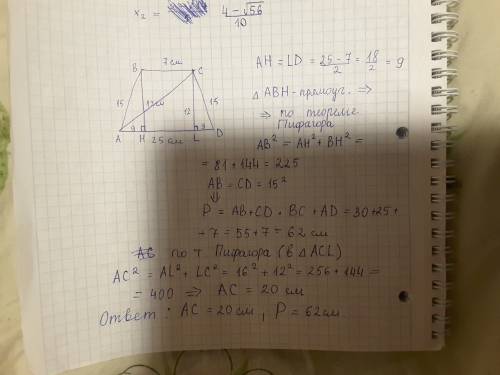 x₂ = (4 - √56)/10
7 см
B C
15 12 см 12 15
A 9 H 25 см L 9 D
AH = LD = (25 - 7)/2 = 18/2 = 9
△ ABH - прямоуг. ⇒
⇒ по теореме
Пифагора
AB² = AH² + BH² =
= 81 + 144 = 225
AB = CD = 15²
⇓
P = AB + CD + BC + AD = 30 + 25 +
+ 7 = 55 + 7 = 62 см
AC по т Пифагора (в △ ACL)
AC² = AL² + LC² = 16² + 12² = 256 + 144 =
= 400 ⇒ AC = 20 см
Ответ: AC = 20 см, P = 62 см